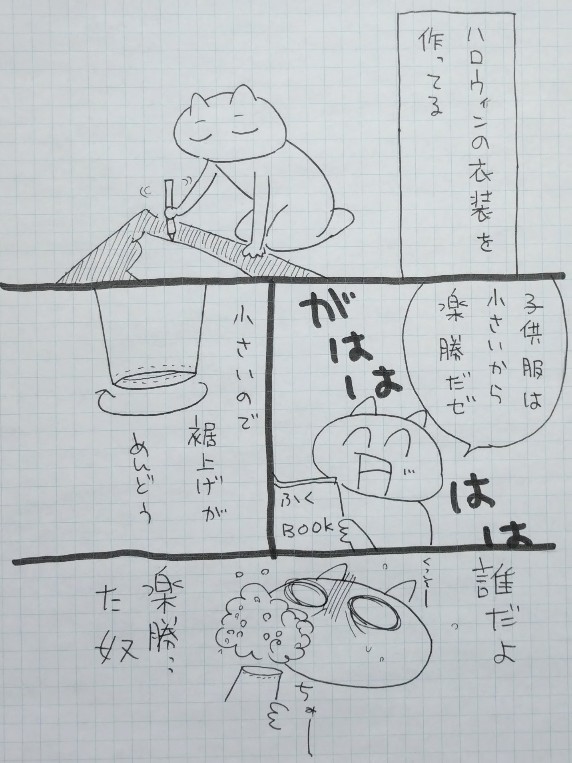 ハロウィンの衣装を
作ってる
子供服は
小さいから
楽勝だぜ
がはは
はは
ふく
BOOK
小さいので
裾上げが
めんどう
誰だよ
楽勝っ
た奴
ちゅー